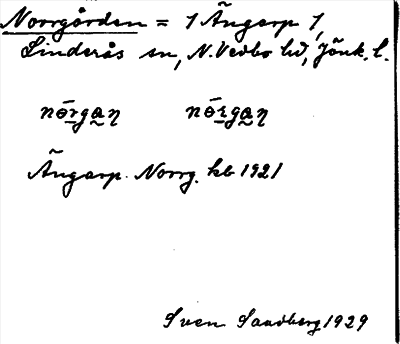 Norrgården = 1 Ängarp 1,
Linderås sn, N. Vedbo hd, Jönk. l.
nórgaη nórgaη
Ängarp. Norrg. kb 1921
Sven Sandberg 1929